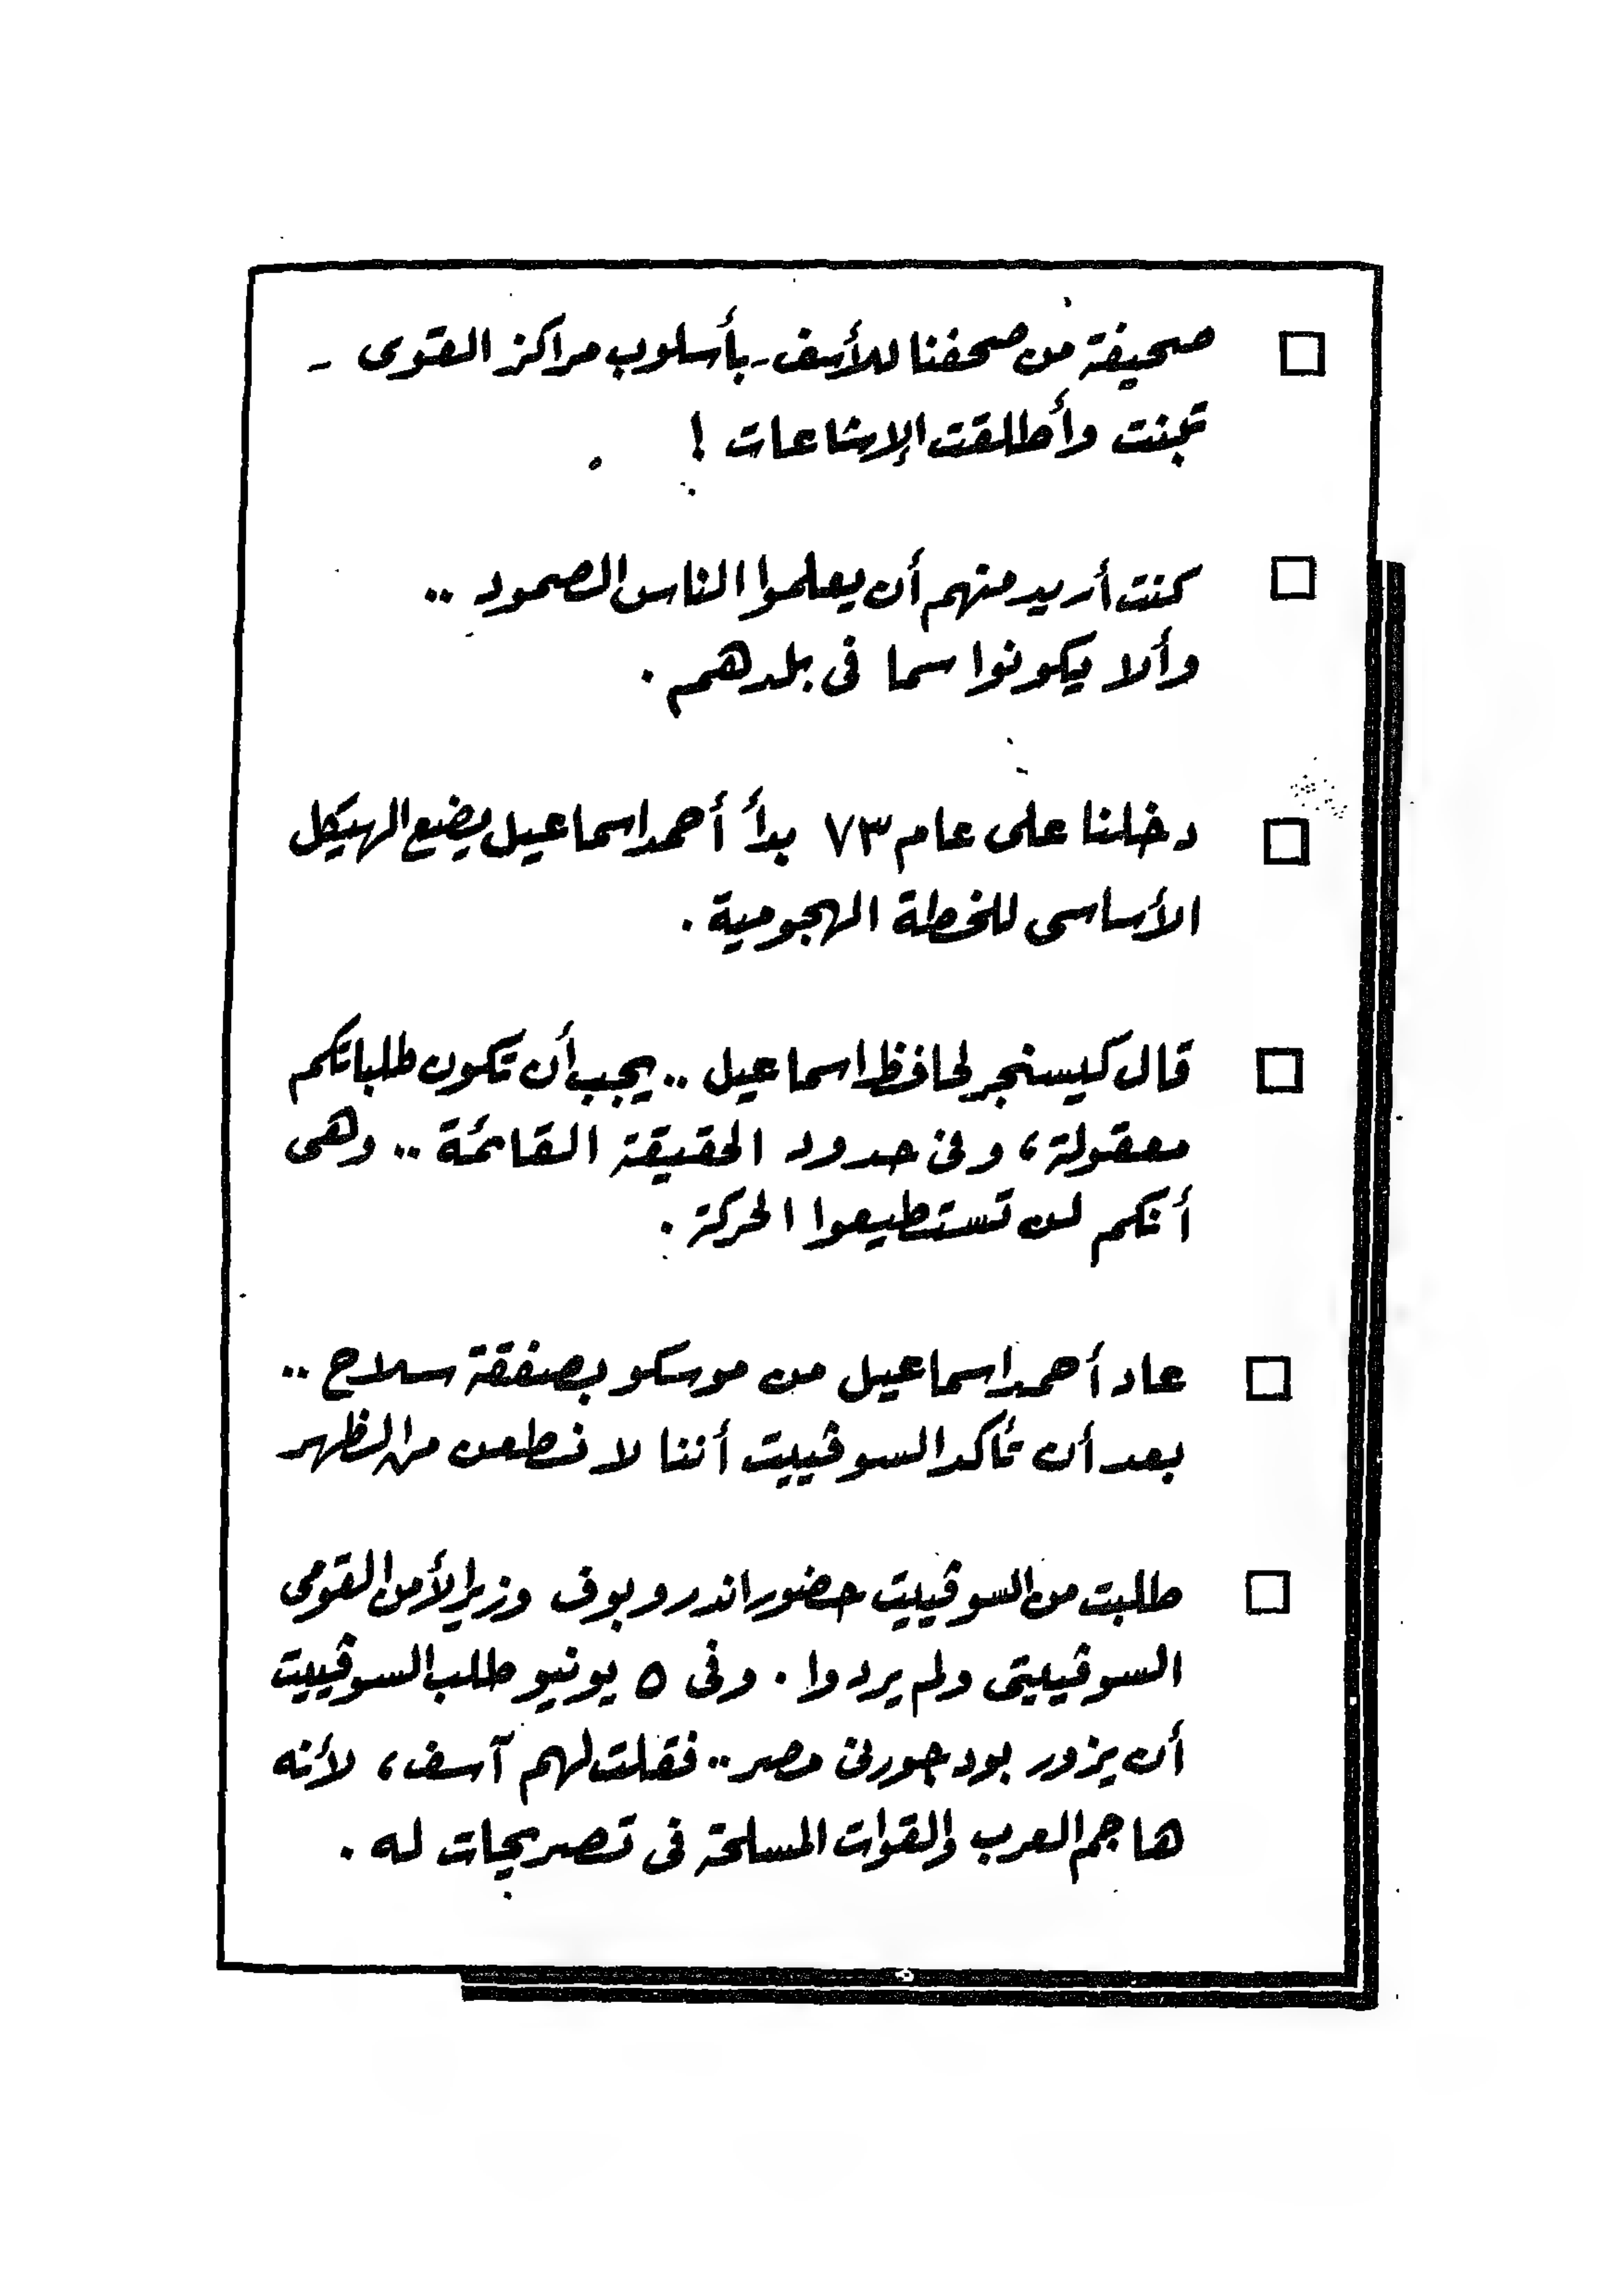 □ صحيفة من صحفنا للأسف - بأسلوب مراكز القوى -
تبنت وأطلقت الإشاعات !
□ كنت أريد منهم أن يعلموا الناس الصمود ..
وألا يكونوا سما فى بلدهم .
□ دخلنا على عام ٧٣ بدأ أحمد اسماعيل يضع الهيكل
الأساسى للخطة الهجومية .
□ قال كيسنجر لحافظ اسماعيل .. يجب أن تكون طلباتكم
معقولة ، وفى حدود الحقيقة القائمة .. وهى
أنكم لن تستطيعوا الحركة .
□ عاد أحمد اسماعيل من موسكو بصفقة سلاح ..
بعد أن تأكد السوڤييت أننا لا نطعن من الظهر
□ طلبت من السوڤييت حضور اندروبوف وزير الأمن القومى
السوڤييتى ولم يردوا . وفى ٥ يونيو طلب السوڤييت
أن يزور بودجورنى مصر .. فقلت لهم آسف ، لأنه
هاجم العرب والقوات المسلحة فى تصريحات له .